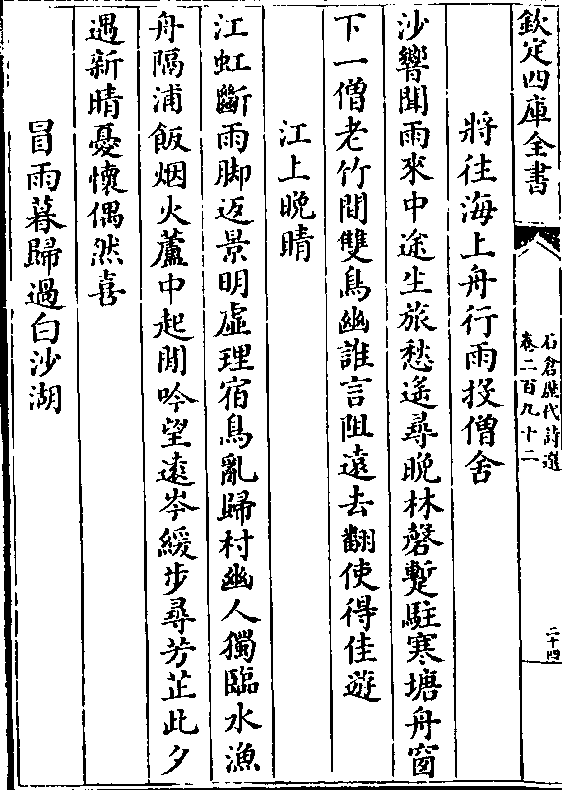 欽定四庫全書
石倉歷代詩選
卷二百九十二
二十四
將往海上舟行雨投僧舍
沙響聞雨來中途生旅愁遙尋晚林磬蹔駐寒塘舟窗
下一僧老竹間雙鳥幽誰言阻遠去翻使得佳遊
江上晚晴
江虹斷雨脚返景明虛理宿鳥亂歸村幽人獨臨水漁
舟隔浦飯烟火蘆中起閒吟望遠岑緩步尋芳芷此夕
遇新晴憂懷偶然喜
冒雨暮歸過白沙湖